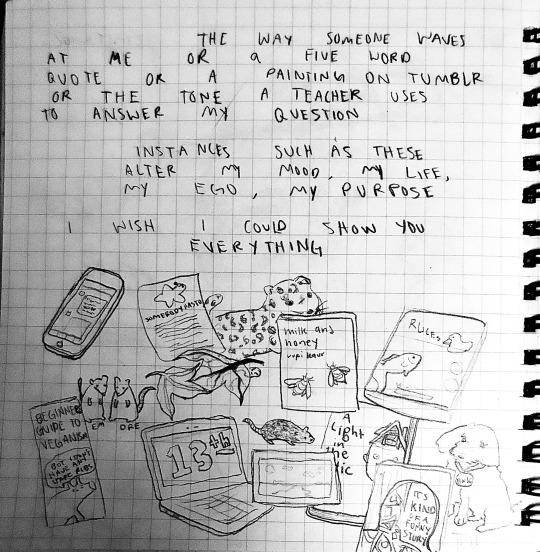 THE WAY SOMEONE WAVES
AT ME OR A FIVE WORD
QUOTE OR A PAINTING ON TUMBLR
OR THE TONE A TEACHER USES
TO ANSWER MY QUESTION
INSTANCES SUCH AS THESE
ALTER MY MOOD, MY LIFE,
MY EGO, MY PURPOSE
I WISH I COULD SHOW YOU
EVERYTHING
milk and
honey
rupi kaur
RULES
BEGINNERS
GUIDE TO
VEGANISM
BUT I DON'T
HAVE ANY
SPARE RIBS
EM
ORE
13th
A
light
in
the
attic
IT'S
KIND
OF A
FUNNY
STORY